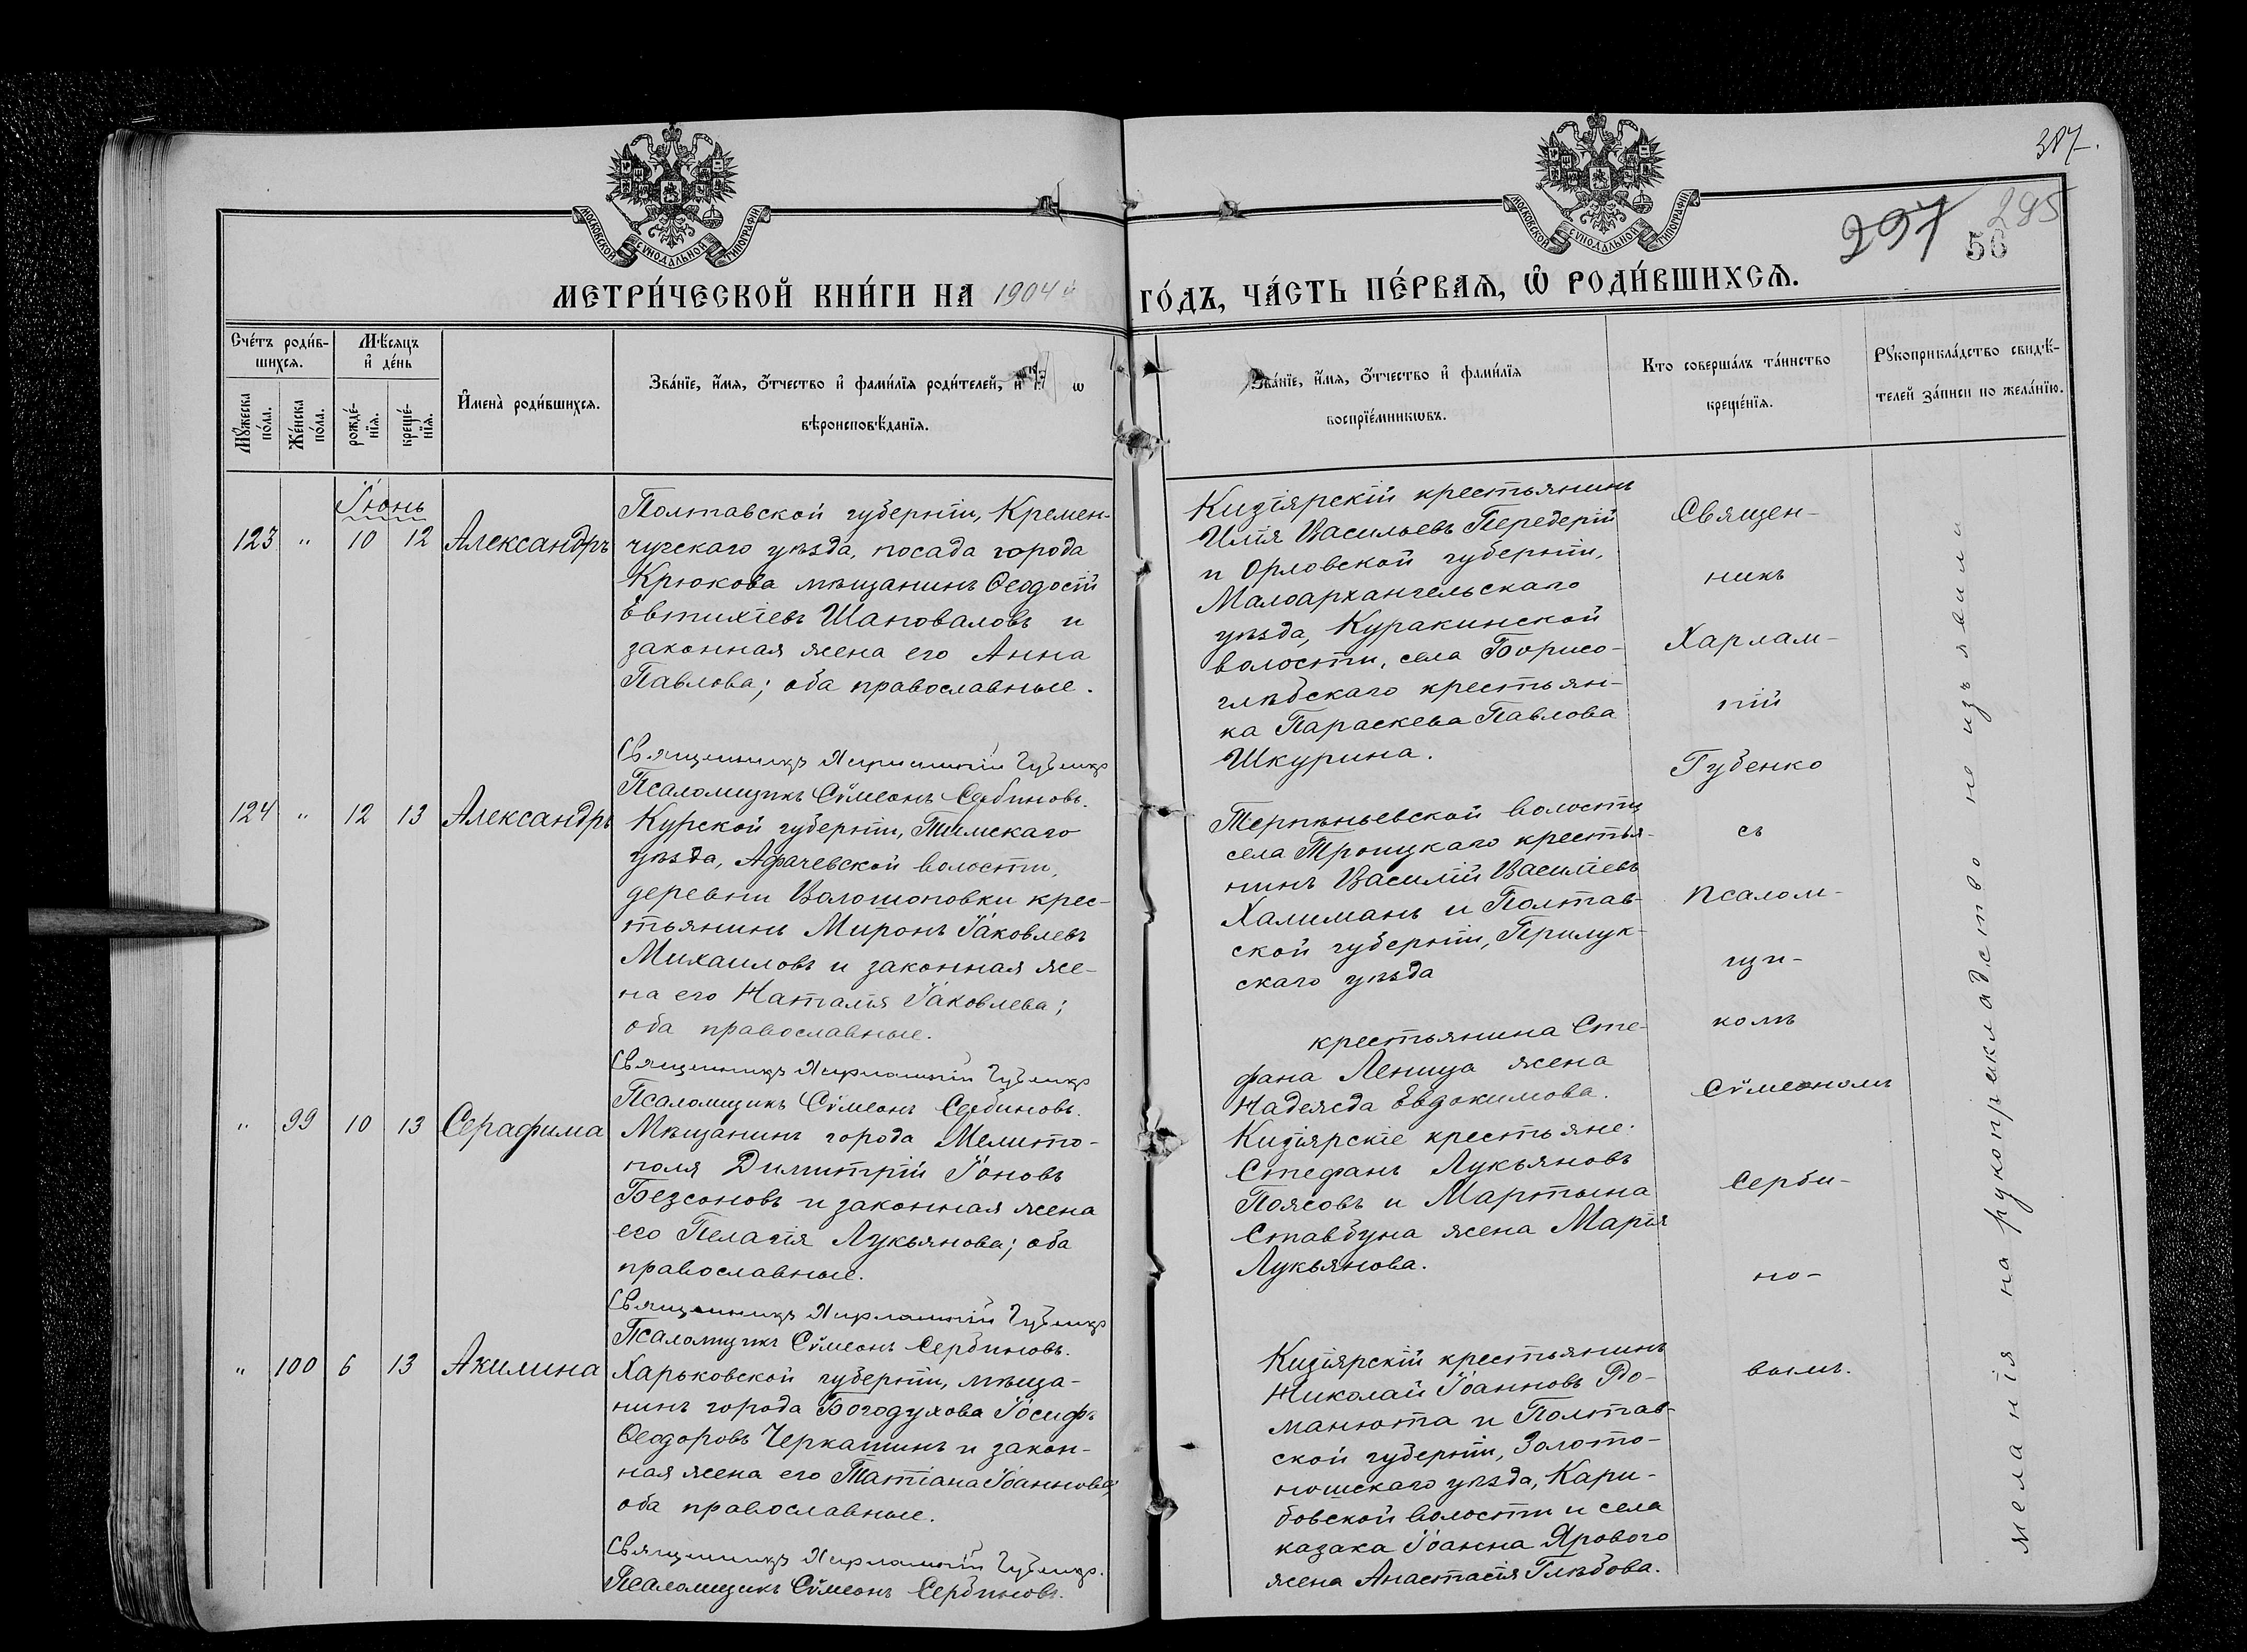 387.
297
295
56
МОСКОВСКОЙ СѴНОДАЛЬНОЙ ТИПОГРАФІИ
МОСКОВСКОЙ СѴНОДАЛЬНОЙ ТИПОГРАФІИ
МЕТРИ́ЧЕСКОЙ КНИ́ГИ НА 1904 й ГО́ДЪ, ЧА́СТЬ ПЕ́РВАѦ, Ѡ҆ РОДИ́ВШИХСѦ.
Сче́тъ роди́в-
шихсѧ.
Мꙋ́жеска по́ла.
Же́нска по́ла.
Мѣ́сѧцъ
и҆ де́нь
рожде́-
нїѧ.
креще́-
нїѧ.
И҆мена̀ роди́вшихсѧ.
Зва́нїе, и҆́мѧ, ѻ҆́тчество и҆ фамі́лїѧ роди́телей, и
вѣроисповѣ́данїѧ.
Зва́нїе, и҆́мѧ, ѻ҆́тчество и҆ фамі́лїѧ
воспрїе́мникѡвъ.
Кто соверша́лъ та́инство
креще́нїѧ.
Рꙋкоприкла́дство свидѣ́-
телей за́писи по жела́нїю.
Іюнь
123 " 10 12 Александръ
Полтавской губерніи, Кремен-
чугскаго уѣзда, посада города
Крюкова мѣщанинъ Ѳеодосій
Евтихіевъ Шаповаловъ и
законная жена его Анна
Павлова; оба православные.
Священникъ Харлампій Губенко
Псаломщикъ Сѵмеонъ Сербиновъ.
Кизіярскій крестьянинъ
Илія Васильевъ Передерій
и Орловской губерніи,
Малоархангельскаго
уѣзда, Куракинской
волости, села Борисо-
глѣбскаго крестьян-
ка Параскева Павлова
Шкурина.
124 " 12 13 Александръ
Курской губерніи, Тимскаго
уѣзда, Афачевской волости,
деревни Волошоновки крес-
тьянинъ Миронъ Іаковлевъ
Михаиловъ и законная же-
на его Наталія Іаковлева;
оба православные.
Священникъ Харлампій Губенко
Псаломщикъ Сѵмеонъ Сербиновъ.
Терпѣньевской волости
села Троицкаго крестья-
нинъ Василій Василіевъ
Халиманъ и Полтав-
ской губерніи, Прилук-
скаго уѣзда
крестьянина Сте-
фана Леница жена
Надежда Евдокимова.
" 99 10 13 Серафима
Мѣщанинъ города Мелито-
поля Димитрій Іоновъ
Безсоновъ и законная жена
его Пелагія Лукьянова; оба
православные.
Священникъ Харлампій Губенко
Псаломщикъ Сѵмеонъ Сербиновъ.
Кизіярскіе крестьяне:
Стефанъ Лукьяновъ
Поясовъ и Мартына
Ставбуна жена Марія
Лукьянова.
" 100 6 13 Акилина
Харьковской губерніи, мѣща-
нинъ города Богодухова Іосифъ
Ѳеодоровъ Черкашинъ и закон-
ная жена его Татіана Іоаннова;
оба православные.
Священникъ Харлампій Губенко.
Псаломщикъ Сѵмеонъ Сербиновъ.
Кизіярскій крестьянинъ
Николай Іоанновъ Ро-
манюта и Полтав-
ской губерніи, Золото-
ношскаго уѣзда, Кари-
бовской волости и села
казака Іоанна Ярового
жена Анастасія Глѣбова.
Священ-
никъ
Харлам-
пій
Губенко
съ
псалом-
щи-
комъ
Сѵмеономъ
Серби-
но-
вымъ.
желанія на рукоприкладство не изъявили